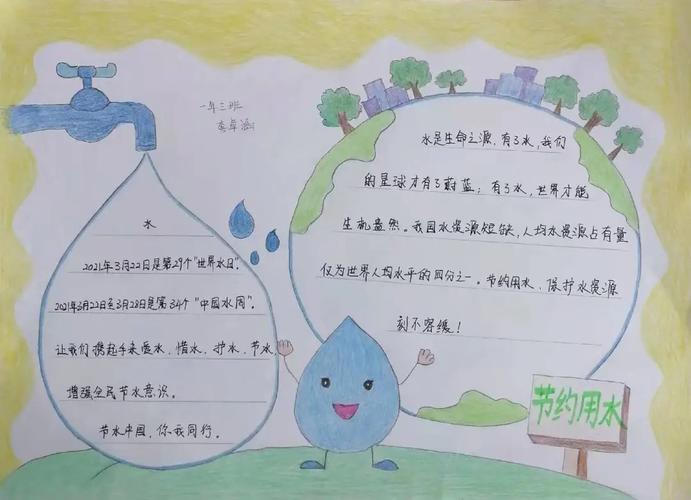 一年三班
李卓涵
水
2021年3月22日是第29个“世界水日”。
2021年3月22日至3月28日是第34个“中国水周”。
让我们携起手来爱水、惜水、护水、节水，
增强全民节水意识。
节水中国，你我同行。
水是生命之源，有了水，我们
的星球才有了蔚蓝；有了水，世界才能
生机盎然。我国水资源短缺，人均水资源占有量
仅为世界人均水平的四分之一。节约用水、保护水资源
刻不容缓！
节约用水